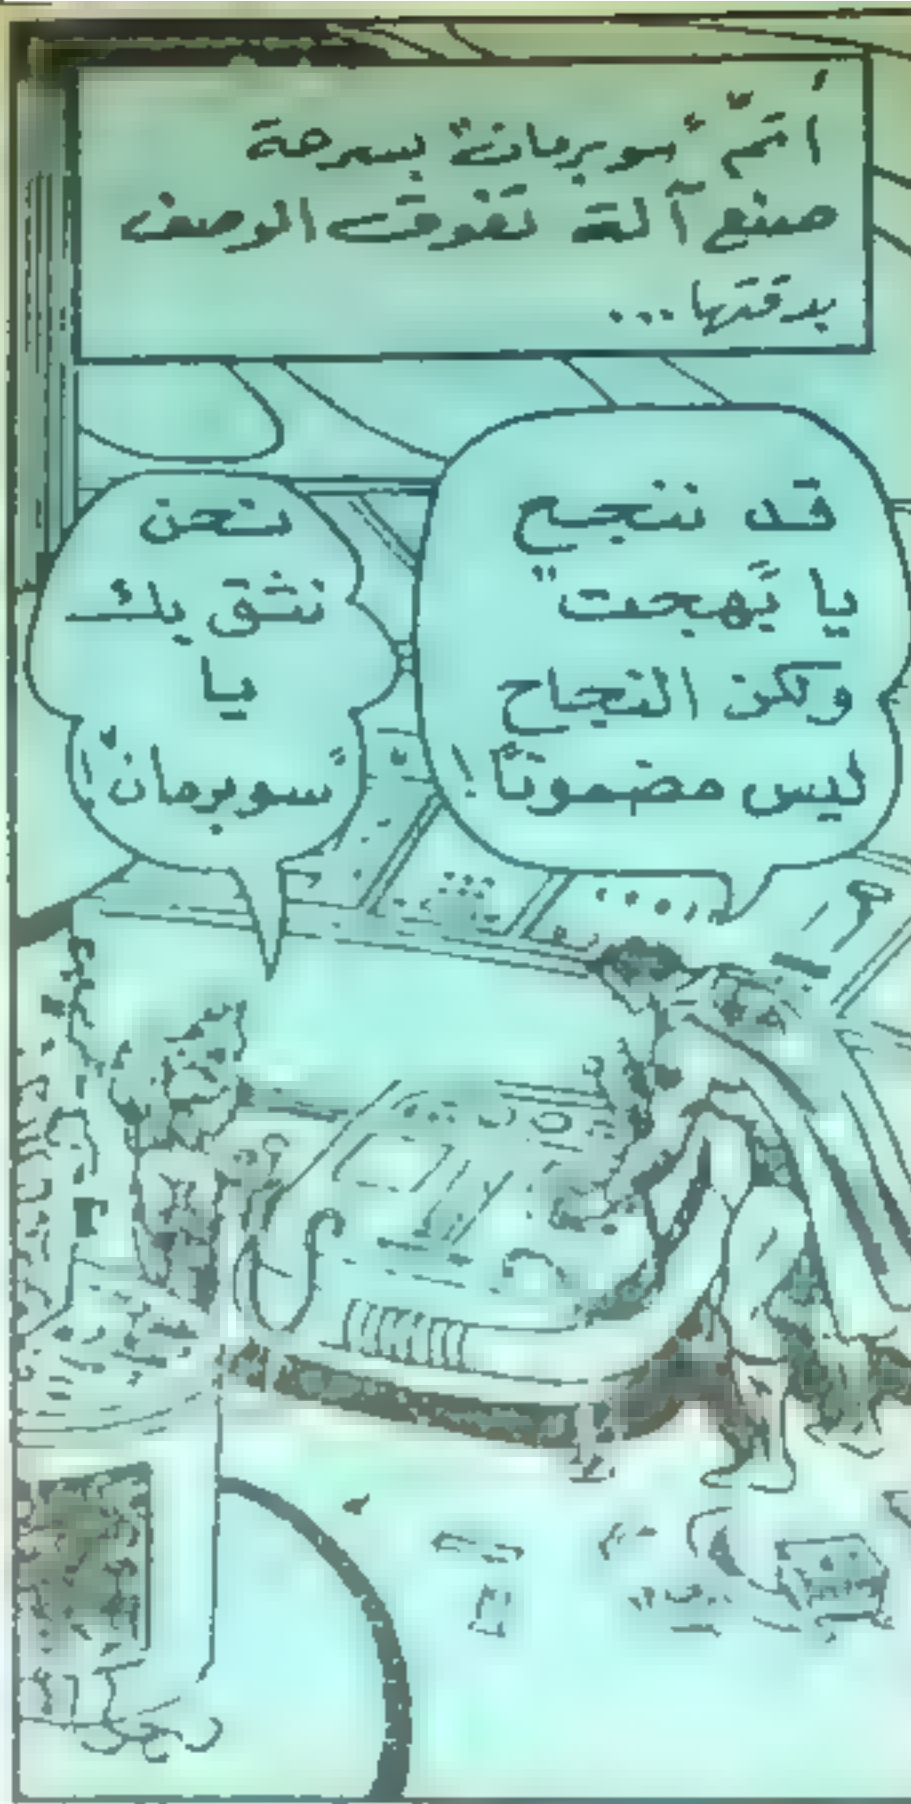 أتمّ "سوبرمان" بسرعة
صنع آلة تفوق الوصف
بدقتها...
قد ننجح
يا "بهجت"
ولكن النجاح
ليس مضموناً!
نحن
نثق بك
يا
"سوبرمان"!